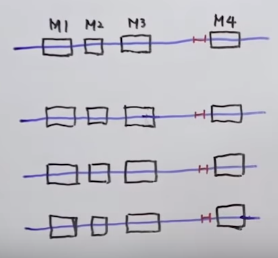 M1 M2 M3 M4